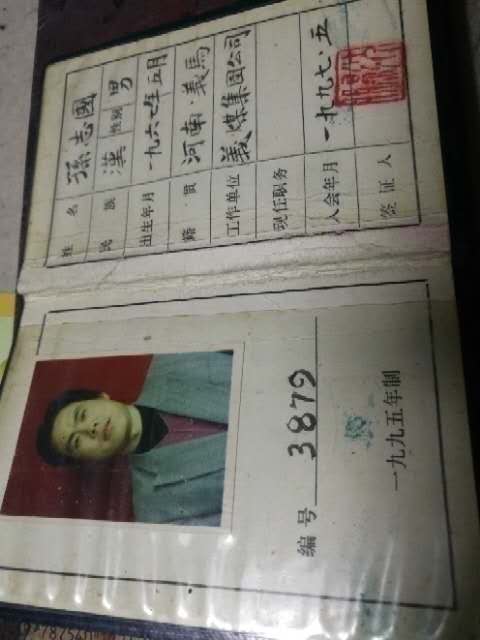 姓名 孫志國
民族 漢 性别 男
出生年月 一九六七年五月
籍貫 河南·義馬
工作单位 義煤集團公司
现任职务
入会年月 一九九七·五
签证人
编号 3879
一九九五年制